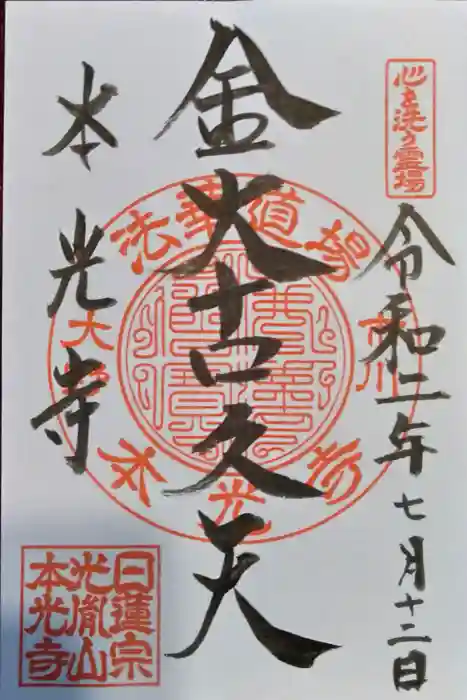 心を洗う霊場
令和二年七月十二日
金大古久天
本光寺
法華道場
市川
大野
本光寺
日蓮宗
光胤山
本光寺